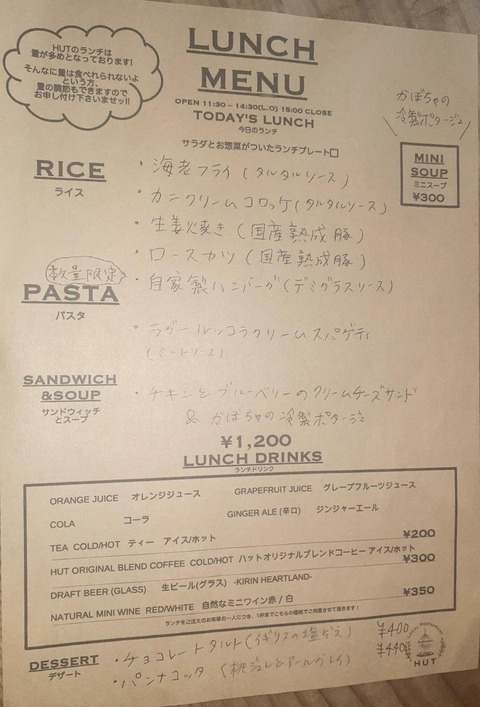 HUTのランチは
量が多めとなっております!
そんなに量は食べれられないよ
という方、
量の調節もできますので
お申し付け下さいませッ!!
LUNCH
MENU
OPEN 11:30 – 14:30(L.O) 15:00 CLOSE
TODAY'S LUNCH
今日のランチ
サラダとお惣菜がついたランチプレート□
かぼちゃの
冷製ポタージュ
MINI
SOUP
ミニスープ
¥300
RICE
ライス
・海老フライ(タルタルソース)
・カニクリームコロッケ(タルタルソース)
・生姜焼き(国産熟成豚)
・ロースカツ(国産熟成豚)
・自家製ハンバーグ(デミグラスソース)
数量限定
PASTA
パスタ
・ラグールッコラクリームスパゲティ
(ミートソース)
SANDWICH
&SOUP
サンドウィッチ
とスープ
・チキンとブルーベリーのクリームチーズサンド
& かぼちゃの冷製ポタージュ
¥1,200
LUNCH DRINKS
ランチドリンク
ORANGE JUICE オレンジジュース GRAPEFRUIT JUICE グレープフルーツジュース
COLA コーラ GINGER ALE (辛口) ジンジャーエール
TEA COLD/HOT ティー アイス/ホット ¥200
HUT ORIGINAL BLEND COFFEE COLD/HOT ハットオリジナルブレンドコーヒー アイス/ホット
¥300
DRAFT BEER (GLASS) 生ビール(グラス) -KIRIN HEARTLAND-
NATURAL MINI WINE RED/WHITE 自然なミニワイン赤 / 白 ¥350
ランチをご注文のお客様お一人につき、1杯までこちらの価格でご用意させて頂きます!
DESSERT
デザート
・チョコレートタルト(イギリスの塩ぞえ) ¥400
・パンナコッタ (桃ジュレとアールグレイ) ¥440
HUT